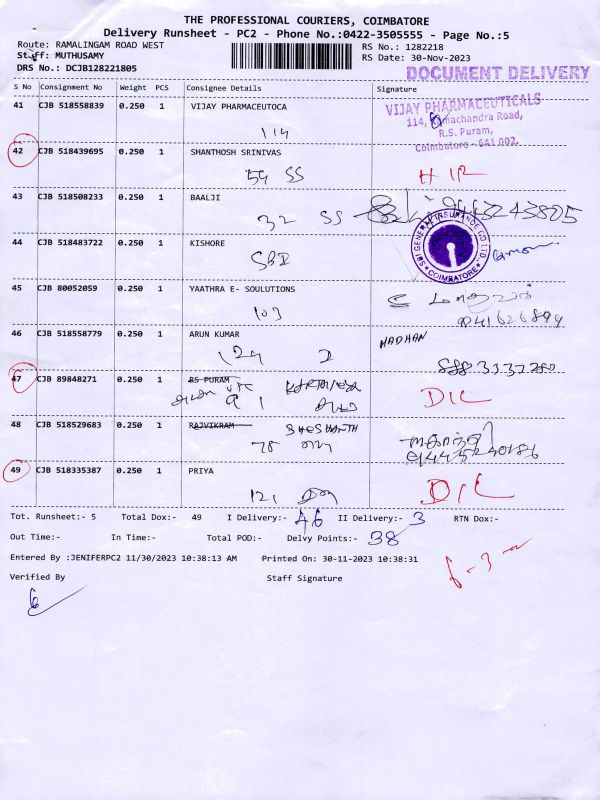 THE PROFESSIONAL COURIERS, COIMBATORE
Delivery Runsheet - PC2 - Phone No.:0422-3505555 - Page No.:5
Route: RAMALINGAM ROAD WEST
RS No.: 1282218
Staff: MUTHUSAMY
RS Date: 30-Nov-2023
DRS No.: DCJB128221805
DOCUMENT DELIVERY
S No Consignment No Weight PCS Consignee Details Signature
41 CJB 518558839 0.250 1 VIJAY PHARMACEUTOCA
114
VIJAY PHARMACEUTICALS
114, Ramachandra Road,
R.S. Puram,
Coimbatore - 641 002.
42 CJB 518439695 0.250 1 SHANTHOSH SRINIVAS
54 SS
43 CJB 518508233 0.250 1 BAALJI
32 SS
44 CJB 518483722 0.250 1 KISHORE
SBI
SBI GENERAL INSURANCE CO LTD
COIMBATORE
45 CJB 80052059 0.250 1 YAATHRA E- SOULUTIONS
103
46 CJB 518558779 0.250 1 ARUN KUMAR
MADHAN
47 CJB 89848271 0.250 1 RS PURAM
D/L
48 CJB 518529683 0.250 1 RAJVIKRAM
78
49 CJB 518335387 0.250 1 PRIYA
121
D/L
Tot. Runsheet:- 5 Total Dox:- 49 I Delivery:- 46 II Delivery:- 3 RTN Dox:-
Out Time:- In Time:- Total POD:- Delvy Points:- 38
Entered By :JENIFERPC2 11/30/2023 10:38:13 AM Printed On: 30-11-2023 10:38:31
Verified By Staff Signature